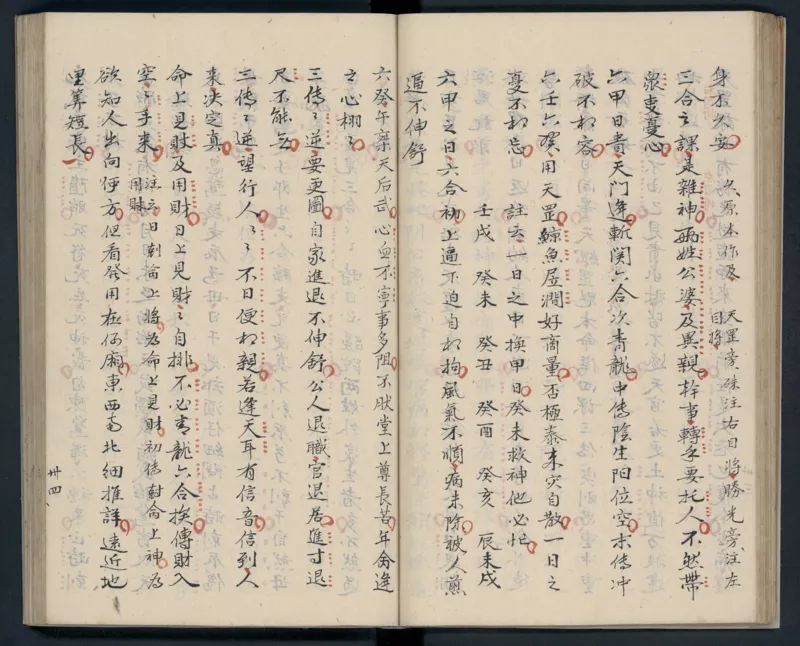 身不久安 必原本作及 天罡旁硃注右目将勝光旁注左目将
三合之課走雜神兩姓公婆及異親幹事轉手要托人不然帶
眾吏憂心
六甲日貴天門逢斬関六合次青龍中傳陰生陽位空末傳冲
破不相容
六壬六癸用天罡鯨魚居澗好商量否極泰来灾自散一日之
憂不相忘 註云四日之中換甲日癸未救神他必忙
壬戌 癸未 癸丑 癸酉 癸亥 辰未戌
六甲之日六合初上逼下迫自相拘風氣不順病未除被人煎
逼不伸舒
六癸午亲天后武心血不寧事多阻不肰堂上尊長苦年命逢
之心栩々
三傳々逆要更圖自家進退不伸舒公人退職官退居進寸退
尺不能甦
三傳々逆望行人々々不日便相親若逢天耳有信音信到人
来决定真
命上見財及用財日上見財々自排不必青龍六合挨傳財入
空亦手来 註六日刻論上將為論上見財初傳對命上神為用財
欲知人出向何方但看發用在何廂東西南北細推詳遠近地
里算短長
卅四